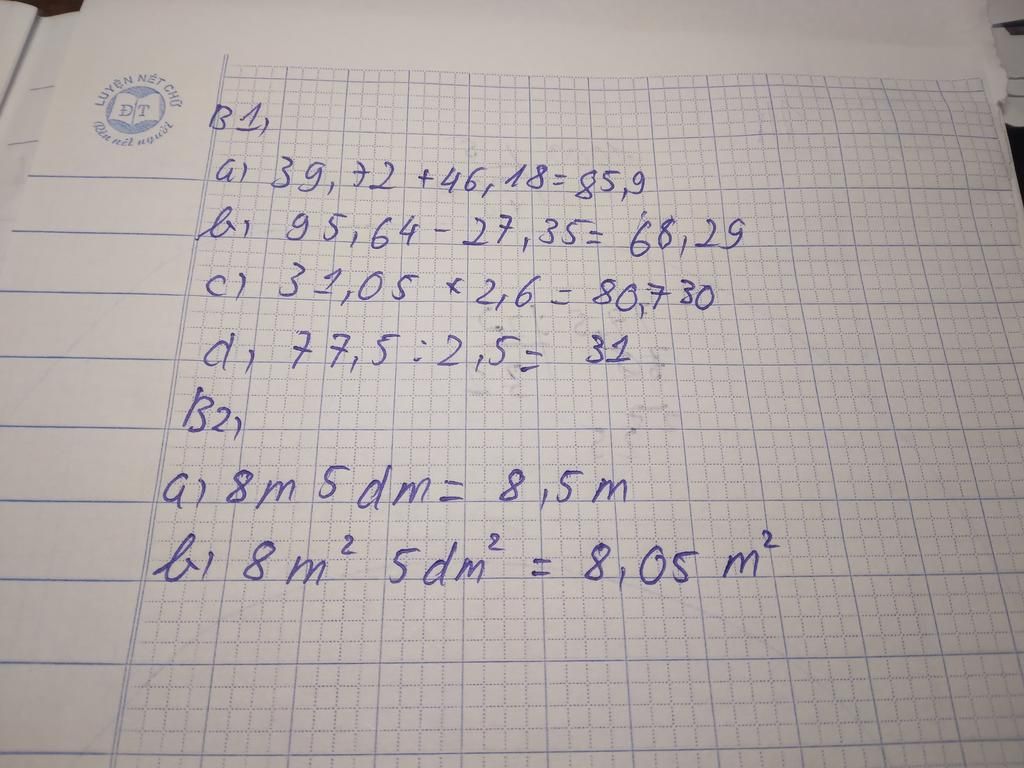 LUYỆN NÉT CHỮ
ĐT
Rèn nết người
B1,
a) 39,72 + 46,18 = 85,9
b) 95,64 - 27,35 = 68,29
c) 31,05 × 2,6 = 80,730
d) 77,5 : 2,5 = 31
B2,
a) 8m 5 dm = 8,5 m
b) 8 m² 5 dm² = 8,05 m²